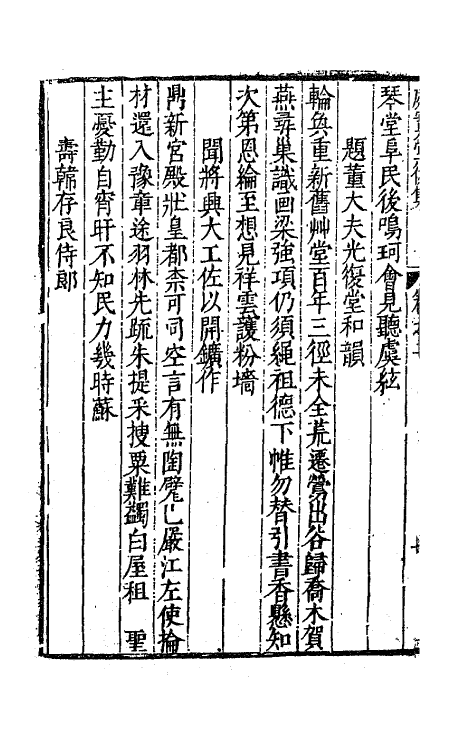 琴堂阜民後鳴珂會見聽虞絃
題董大夫光復堂和韻
輪奐重新舊艸堂百年三徑未全荒遷鶯出谷歸喬木賀
燕尋巢識画梁強項仍須繩祖德下帷勿替引書香懸知
次第恩綸至想見祥雲護粉墻
聞將興大工佐以開鑛作
鼎新宮殿壯皇都柰可司空言有無閩甓已嚴江左使掄
材還入豫章途羽林先䟽朱提采搜粟難蠲白屋租　聖
主憂勤自宵旰不知民力幾時蘇
壽韓存良侍郎